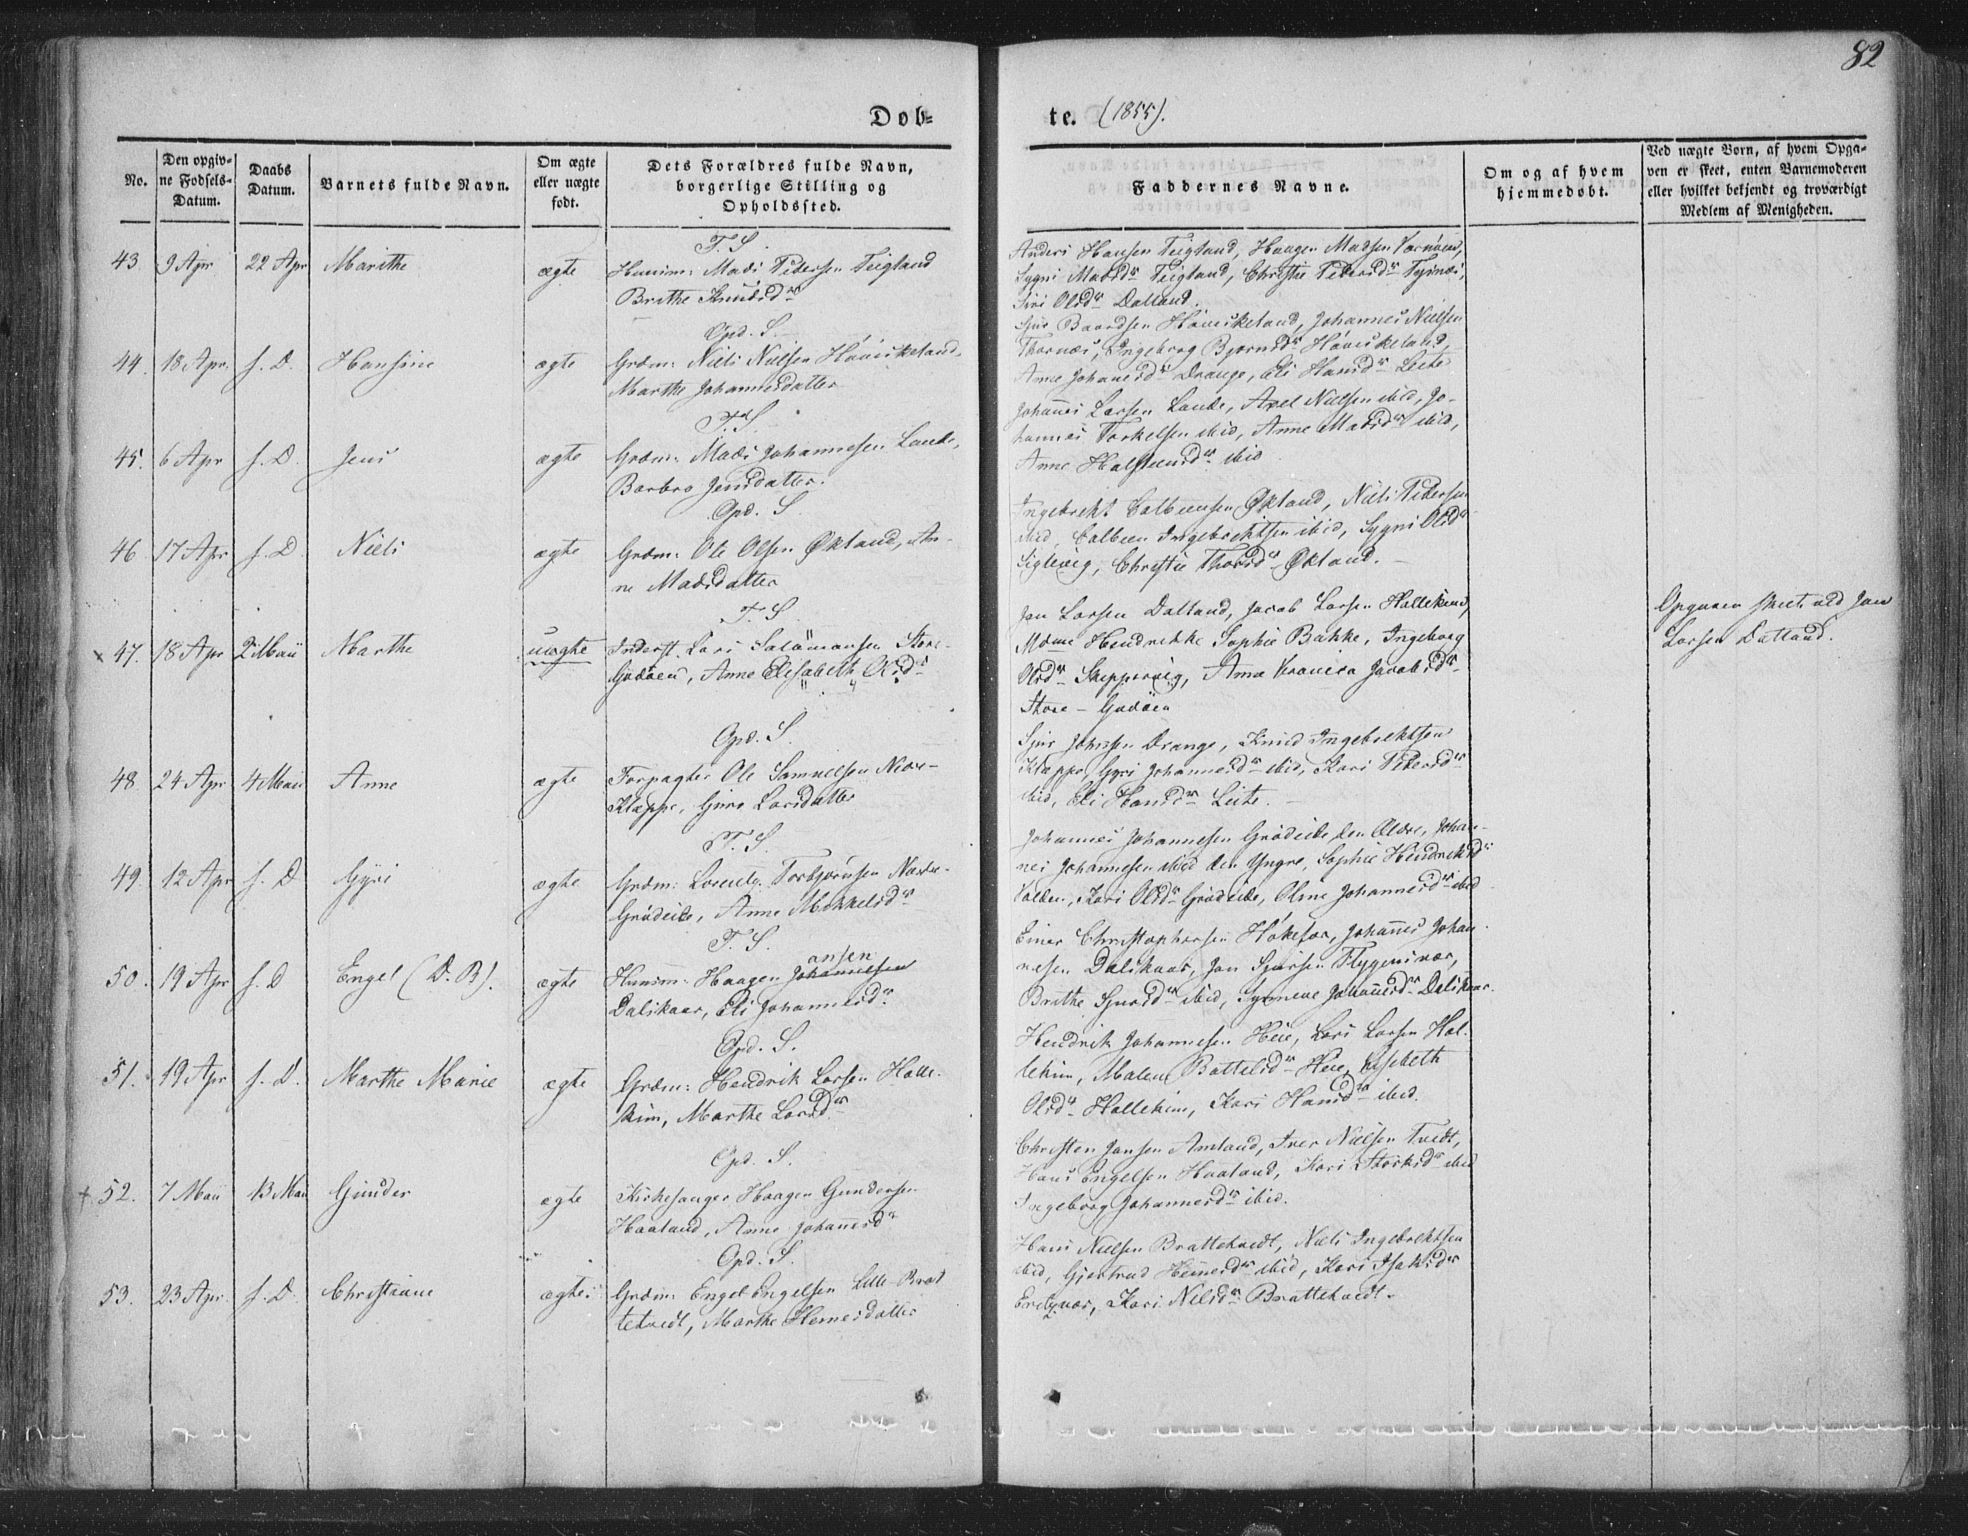 82
Døb=
te. (1855).
No.
Den opgiv=
ne Fødsels=
Datum.
Daabs
Datum.
Barnets fulde Navn.
Om ægte
eller uægte
født.
Dets Forældres fulde Navn,
borgerlige Stilling og
Opholdssted.
Faddernes Navne.
Om og af hvem
hjemmedøbt.
Ved uægte Børn, af hvem Opga=
ven er skeet, enten Barnemoderen
eller hvilket bekjendt og troværdigt
Medlem af Menigheden.
T. S.
43. 9 Apr 22 Apr Marithe ægte Huusm: Mads Petersen Teigland
Brithe Knudsdr
Anders Hansen Teigland, Haagen Madsen
Sygni Madsdr Teigland, Christie Petersdr Tysnæs,
Siri Olsdr Dalland.
Opd. S.
44. 18 Apr. s. D. Hansine ægte Grdm: Niels Nielsen Høviskeland,
Marthe Johannesdatter
Sjur Baardsen Høviskeland, Johannes Nielsen
Thornæs, Ingeborg Bjørnsdr Høviskeland,
Anne Johanesdr Drange, Eli Hansdr Leite
T. S.
45. 6 Apr s. D. Jens ægte Grdm: Mads Johannesen Lande,
Barbro Jensdatter.
Johanes Larsen Lande, Axel Nielsen ibid, Jo-
hannes Torkelsen ibid, Anne Madsdr ibid,
Anne Halsteensdr ibid
Opd. S.
46 17 Apr s. D. Niels ægte Grdm: Ole Olsen Økland, An-
ne Madsdatter
Ingebrekt Colbeensen Økland, Niels Petersen
ibid, Colbeen Ingebrektsen ibid, Sygni Olsdr
Siglevig, Christie Thorsdr Økland. -
T. S.
47. 18 Apr 2 Maii Marthe uægte Inderst. Lars Salamonsen Store-
Godøen, Anne Elisabeth Olsdr
Jon Larsen Dalland, Jacob Larsen Hallekens,
Mdme Hendrikke Sophie Bakke, Ingeborg
Olsdr Skippervig, Anna Kranica Jacobsdr
Store-Godøen
Opgaven skeet ved Jon
Larsen Dalland.
Opd. S.
48. 24 Apr 4 Maii Anne ægte Forpagter Ole Samuelsen Nedre-
Kleppe, Guro Larsdatter
Sjur Johnsen Drange, Knud Ingebrektsen
Kleppe, Gyri Johannesdr ibid, Kari Petersdr
ibid, Eli Hansdr Leite. -
T. S.
49. 12 Apr s. D Gyri ægte Grdm: Lorents Torbjørnsen Nedre-
Grødeide, Anne Mikkelsdr
Johannes Johannesen Grødeide den Ældre, Johan-
nes Johannesen ibid den Yngre, Sophie Hendriksdr
Valden, Kari Olsdr Grødeide, Oline Johannesdr ibid
T. S.
50. 19 Apr s. D Engel (D. B). ægte Huusm: Haagen Johannesen
ansen
Dalskaar, Eli Johannesdr
Einar Christophersen Høkefor, Johannes Johan-
nesen Dalskaar, Jon Sjursen Flygensvær,
Brithe Sjursdr ibid, Synneve Johannesdr Dalskaar.
Opd. S.
51. 19 Apr s. D. Marthe Marie ægte Grdm: Hendrik Larsen Halle-
kim, Marthe Larsdr
Hendrik Johannesen Heie, Lars Larsen Hal-
lekim, Malene Bottelsdr Heie, Lisbeth
Olsdr Hallekim, Kari Hansdr ibid.
Opd. S.
52. 7 Maii 13 Maii Gunder ægte Kirkesanger Haagen Gundersen
Haaland, Anne Johannesdr
Christen Jansen Amland, Iver Nielsen Tvedt,
Hans Engelsen Haaland, Kari Størksdr ibid
Ingeborg Johannesdr ibid.
Opd. S.
53. 23 Apr. s. D. Christiane ægte Grdm: Engel Engelsen Lille-Brat
tetvedt, Marthe Heinesdatter
Hans Nielsen Brattetvedt, Niels Ingebrektsen
ibid, Gjertrud Heinesdr ibid, Kari Isaksdr
Kari Nilsdr Brattetvedt.